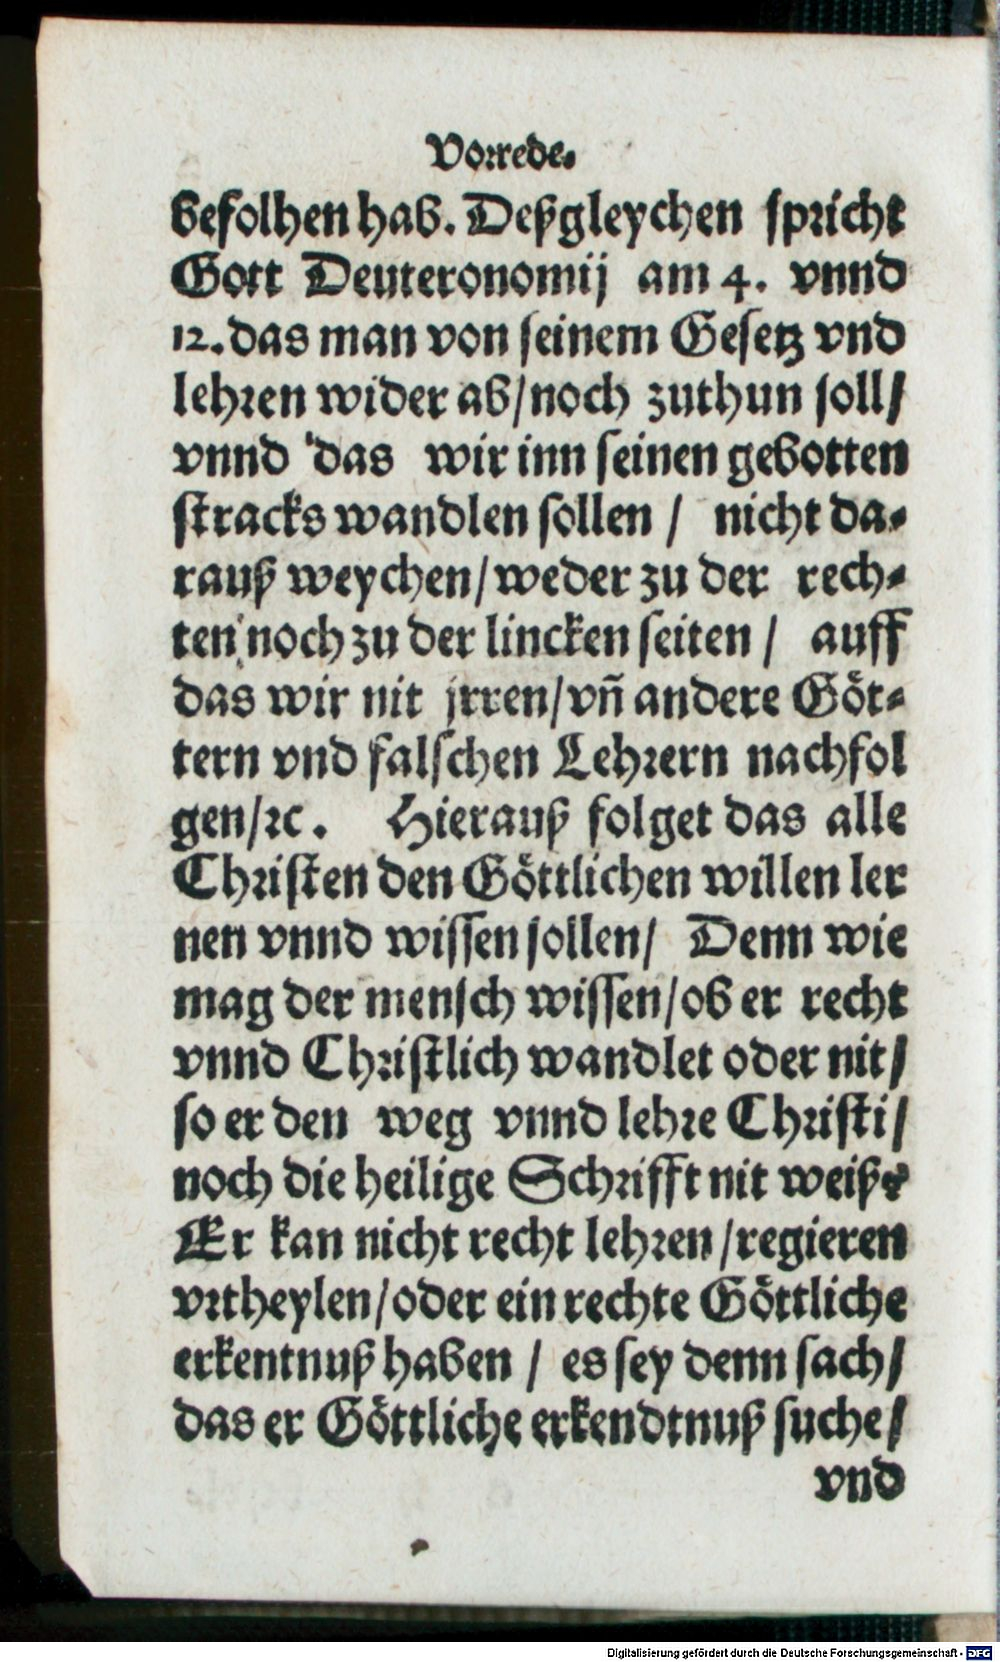 Vorrede.
befolhen hab. Deßgleychen spricht
Gott Deuteronomij am 4. vnnd
12. das man von seinem Gesetz vnd
lehren wider ab/ noch zuthun soll/
vnnd das wir inn seinen gebotten
stracks wandlen sollen / nicht da-
rauß weychen/ weder zu der rech-
ten noch zu der lincken seiten / auff
das wir nit jrren/ vñ andere Göt-
tern vnd falschen Lehrern nachfol
gen/ ꝛc. Hierauß folget das alle
Christen den Göttlichen willen ler
nen vnnd wissen sollen/ Denn wie
mag der mensch wissen/ ob er recht
vnnd Christlich wandlet oder nit/
so er den weg vnnd lehre Christi/
noch die heilige Schrifft nit weiß?
Er kan nicht recht lehren / regieren
vrtheylen/ oder ein rechte Göttliche
erkentnuß haben / es sey denn sach/
das er Göttliche erkendtnuß suche/
vnd
Digitalisierung gefördert durch die Deutsche Forschungsgemeinschaft - DFG